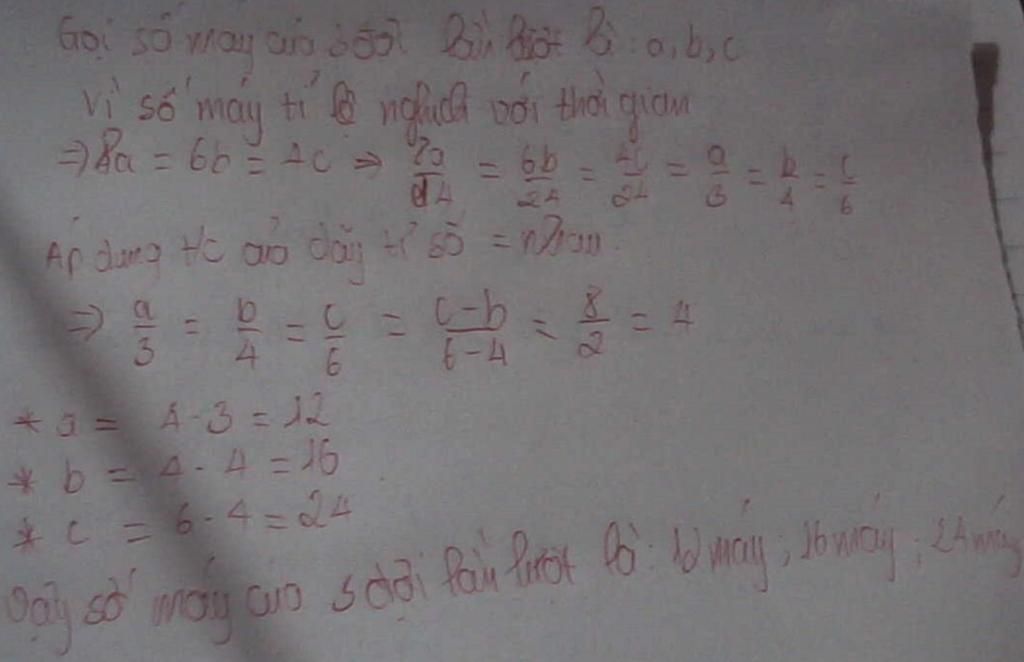 Gọi số máy của 3 đội lần lượt là: a, b, c
Vì số máy tỉ lệ nghịch với thời gian
=> 8a = 6b = 4c => 8a/24 = 6b/24 = 4c/24 = a/3 = b/4 = c/6
Áp dụng t/c của dãy tỉ số = nhau.
=> a/3 = b/4 = c/6 = c-b/6-4 = 8/2 = 4
* a = 4.3 = 12
* b = 4.4 = 16
* c = 6.4 = 24
Vậy số máy của 3 đội lần lượt là: 12 máy; 16 máy; 24 máy